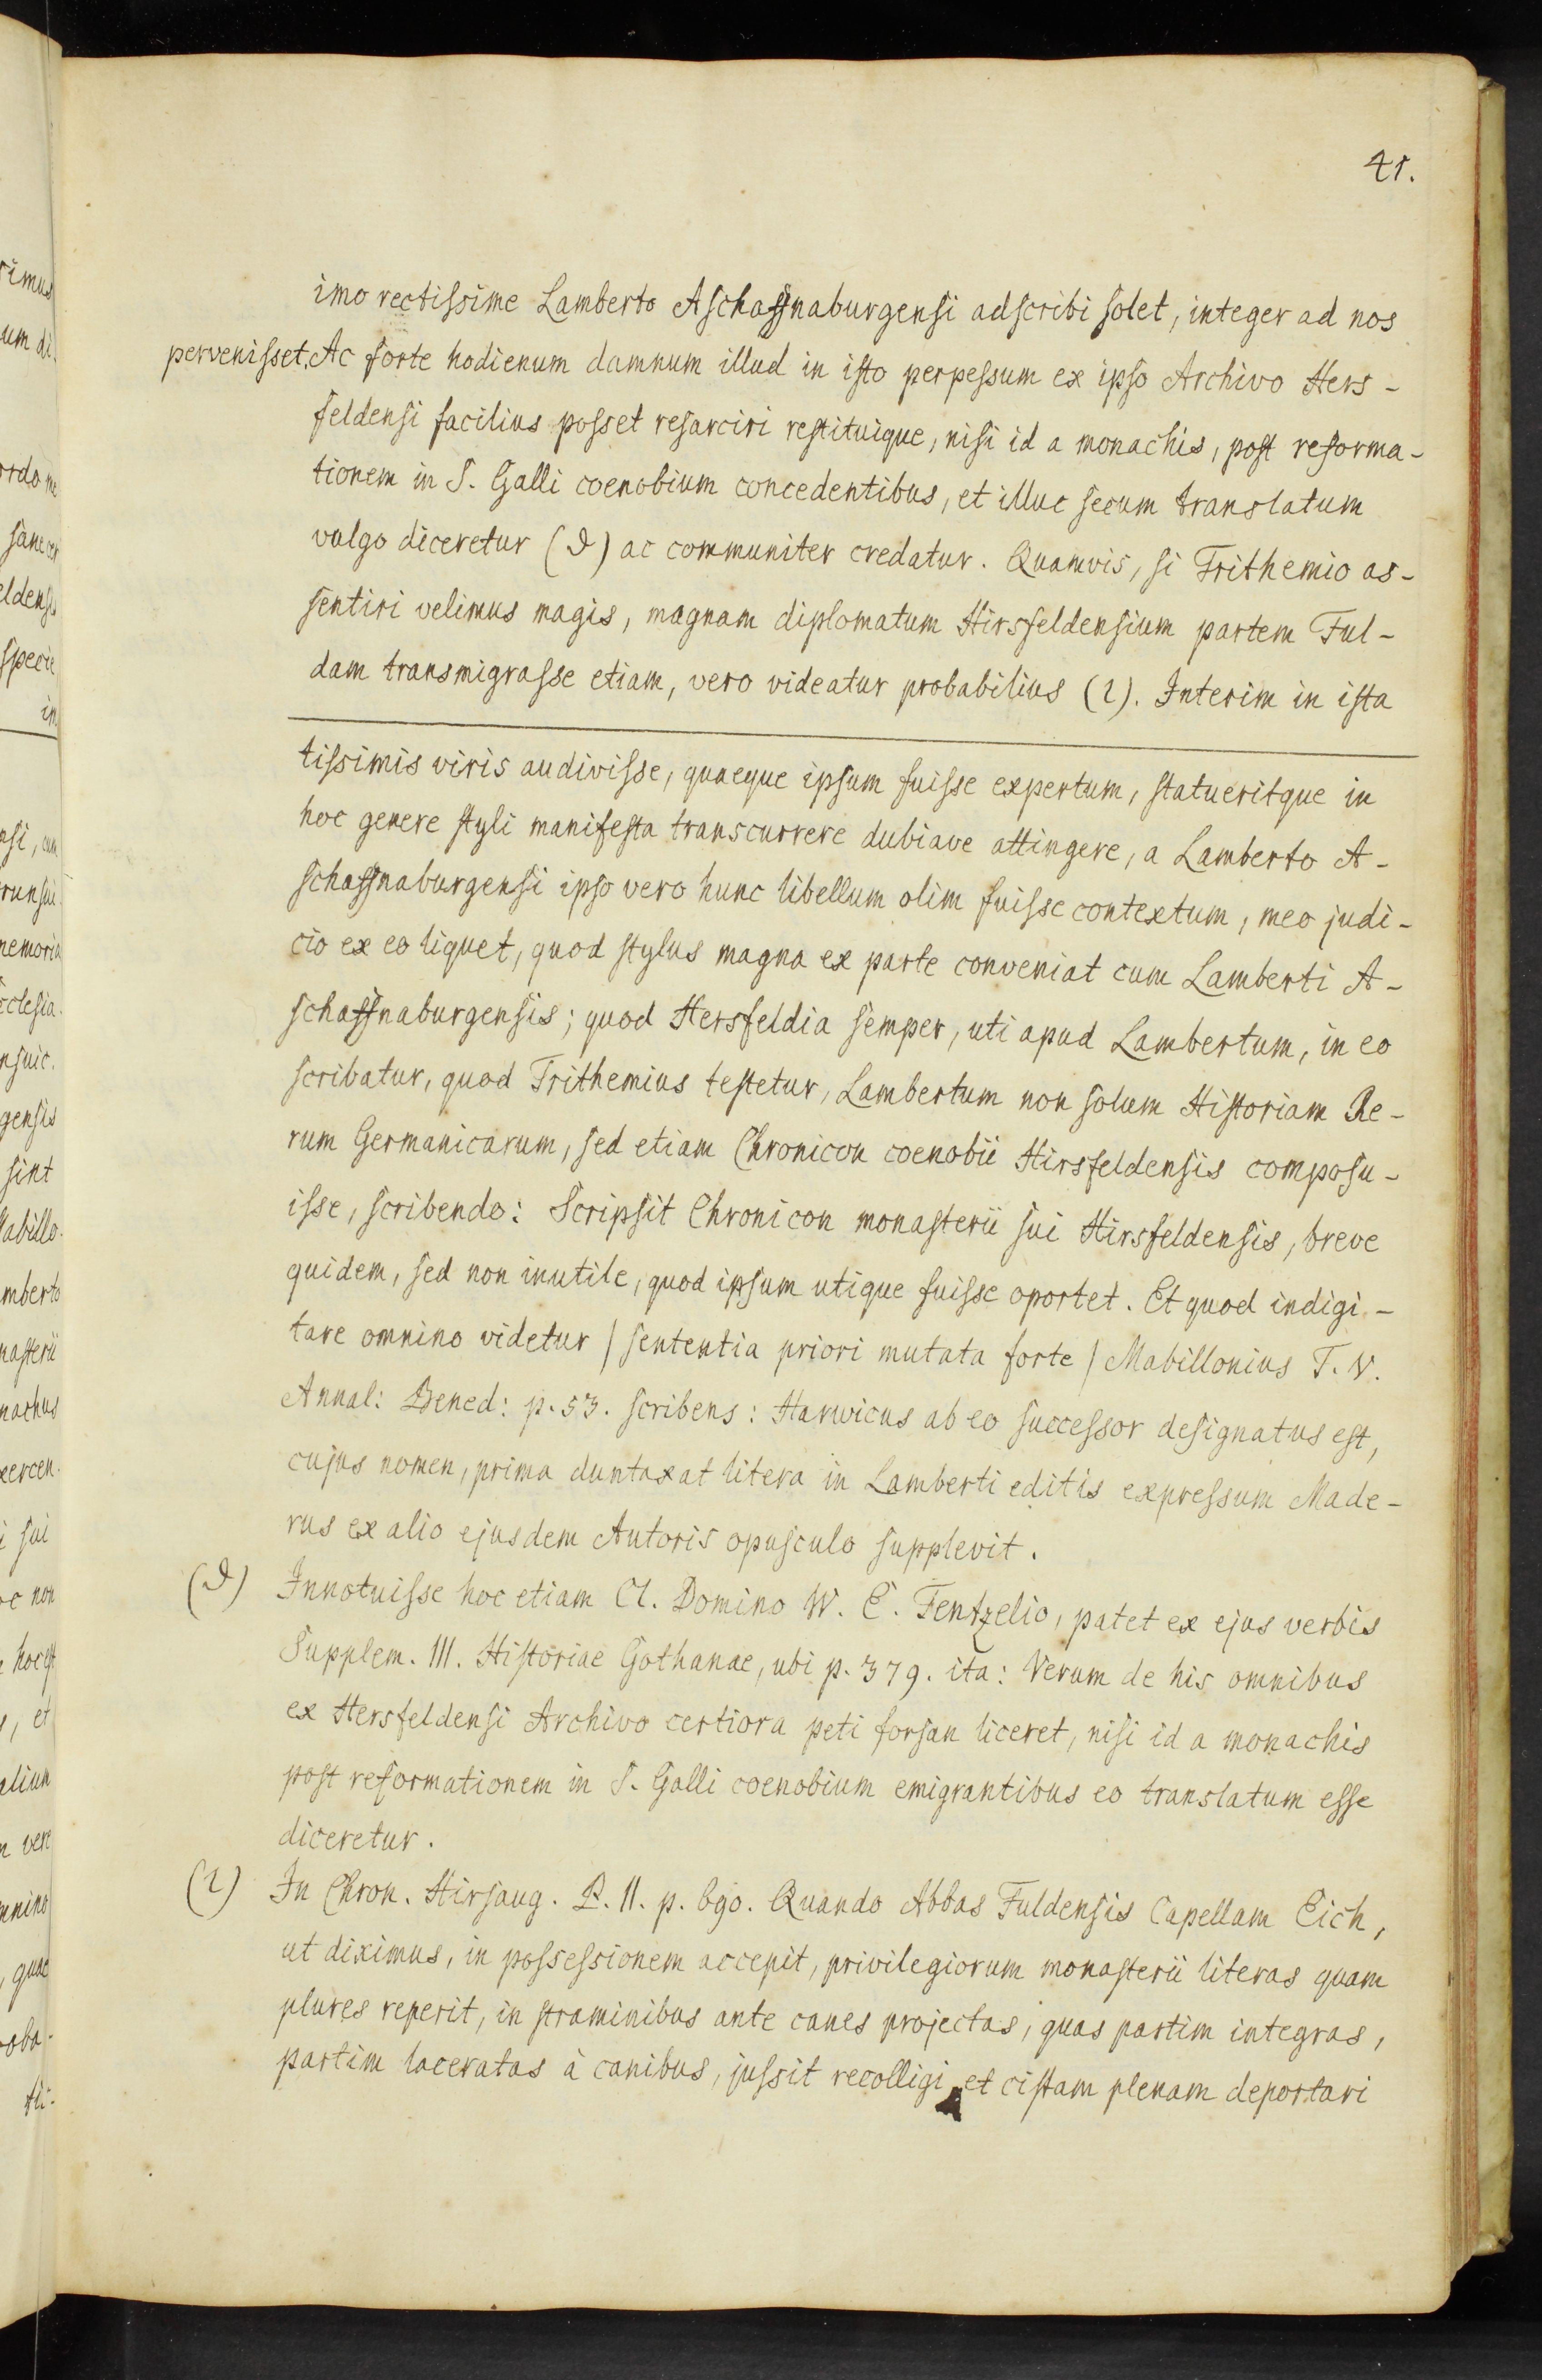 41.
imo rectissime Lamberto Aschaffnaburgensi adscribi solet, integer ad nos
pervenisset. Ac forte hodienum damnum illud in isto perpessum ex ipso Archivo Hers-
feldensi facilius posset resarciri restituique, nisi id a monachis, post reforma-
tionem in S. Galli coenobium concedentibus, et illuc secum translatum
vulgo diceretur (θ) ac communiter credatur. Quamvis, si Trithemio as-
sentiri velimus magis, magnam diplomatum Hirsfeldensium partem Ful-
dam transmigrasse etiam, vero videatur probabilius (ι). Interim in ista
tissimis viris audivisse, quaeque ipsum fuisse expertum, statueritque in
hoc genere styli manifesta transcurrere dubiave attingere, a Lamberto A-
schaffnaburgensi ipso vero hunc libellum olim fuisse contextum, meo judi-
cio ex eo liquet, quod stylus magna ex parte conveniat cum Lamberti A-
schaffnaburgensis; quod Hersfeldia semper, uti apud Lambertum, in eo
scribatur, quod Trithemius testetur, Lambertum non solum Historiam Re-
rum Germanicarum, sed etiam Chronicon coenobii Hirsfeldensis composu-
isse, scribendo: Scripsit Chronicon monasterii sui Hirsfeldensis, breve
quidem, sed non inutile, quod ipsum utique fuisse oportet. Et quod indigi-
tare omnino videtur / sententia priori mutata forte / Mabillonius T. V.
Annal: Bened: p. 53. scribens: Harwicus ab eo successor designatus est,
cujus nomen, prima duntaxat litera in Lamberti editis expressum Made-
rus ex alio ejusdem Autoris opusculo supplevit.
(θ) Innotuisse hoc etiam Cl. Domino W. E. Tentzelio, patet ex ejus verbis
Supplem. III. Historiae Gothanae, ubi p. 379. ita: Verum de his omnibus
ex Hersfeldensi Archivo certiora peti forsan liceret, nisi id a monachis
post reformationem in S. Galli coenobium emigrantibus eo translatum esse
diceretur.
(ι) In Chron. Hirsaug. P. II. p. 690. Quando Abbas Fuldensis Capellam Eich,
ut diximus, in possessionem accepit, privilegiorum monasterii literas quam
plures reperit, in straminibus ante canes projectas, quas partim integras,
partim laceratas à canibus, jussit recolligi et cistam plenam deportari